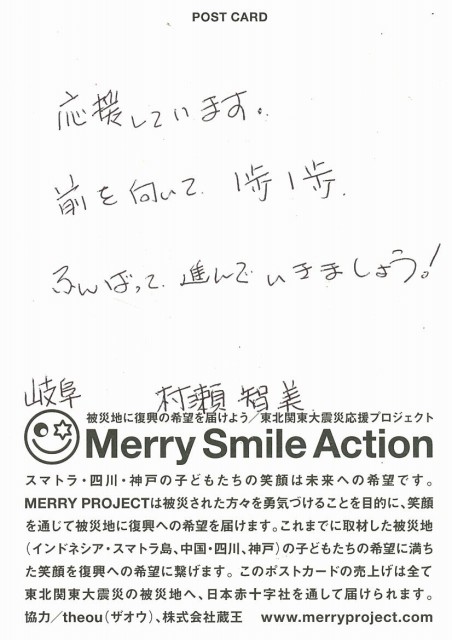 POST CARD
応援しています。
前を向いて、1歩1歩、
ふんばって、進んでいきましょう!
岐阜 村瀬 智美
被災地に復興の希望を届けよう/東北関東大震災応援プロジェクト
Merry Smile Action
スマトラ・四川・神戸の子どもたちの笑顔は未来への希望です。
MERRY PROJECTは被災された方々を勇気づけることを目的に、笑顔
を通じて被災地に復興への希望を届けます。これまでに取材した被災地
(インドネシア・スマトラ島、中国・四川、神戸)の子どもたちの希望に満ち
た笑顔を復興への希望に繋げます。このポストカードの売上げは全て
東北関東大震災の被災地へ、日本赤十字社を通して届けられます。
協力/theou(ザオウ)、株式会社蔵王 www.merryproject.com